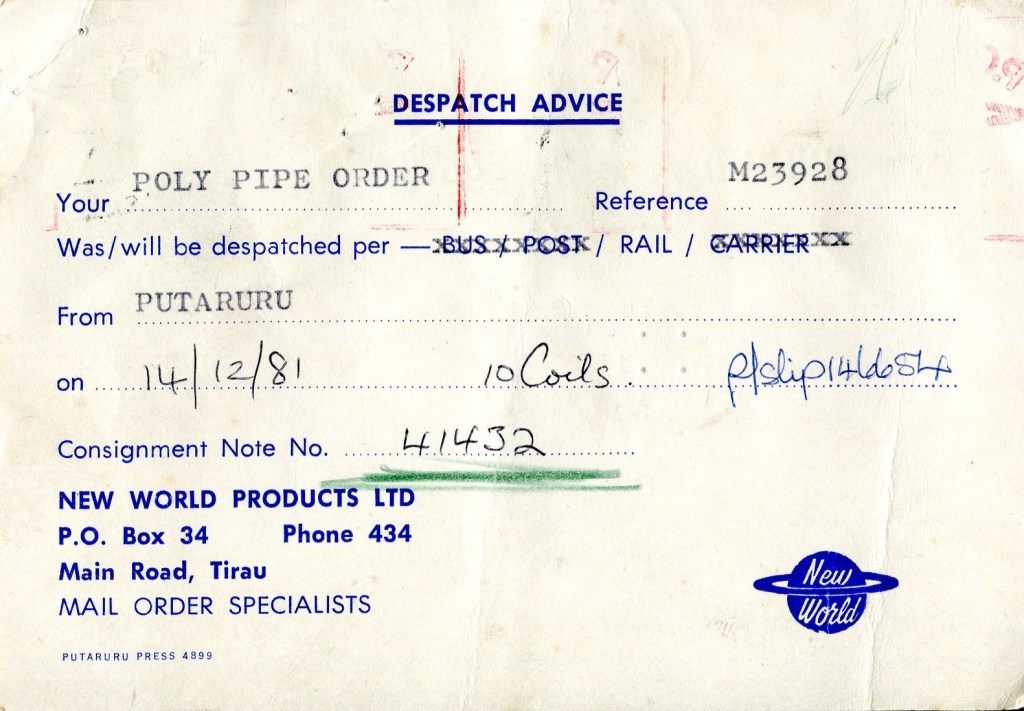 DESPATCH ADVICE
Your POLY PIPE ORDER Reference M23928
Was/will be despatched per — BUS / POST / RAIL / CARRIER
From PUTARURU
on 14/12/81 10 Coils. p/slip 146654
Consignment Note No. 41432
NEW WORLD PRODUCTS LTD
P.O. Box 34 Phone 434
Main Road, Tirau
MAIL ORDER SPECIALISTS
New
World
PUTARURU PRESS 4899